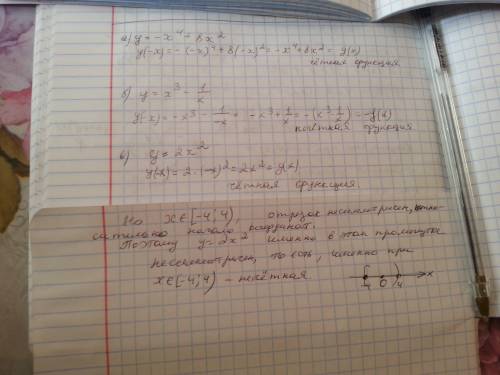 а) y = -x⁴ + 8x²
y(-x) = -(-x)⁴ + 8(-x)² = -x⁴ + 8x² = y(x)
чётная функция
б) y = x³ - 1/x
y(-x) = -x³ - 1/-x = -x³ + 1/x = -(x³ - 1/x) = -y(x)
нечётная функция
в) y = 2x²
y(-x) = 2·(-x)² = 2x² = y(x)
чётная функция.
Но x∈[-4; 4), отрезок несимметричен, отно-
сительно начала координат.
Поэтому y = 2x² именно в этом промежутке
несимметричен, то есть, именно при
x∈[-4; 4) - нечётная
-4 0 4 x